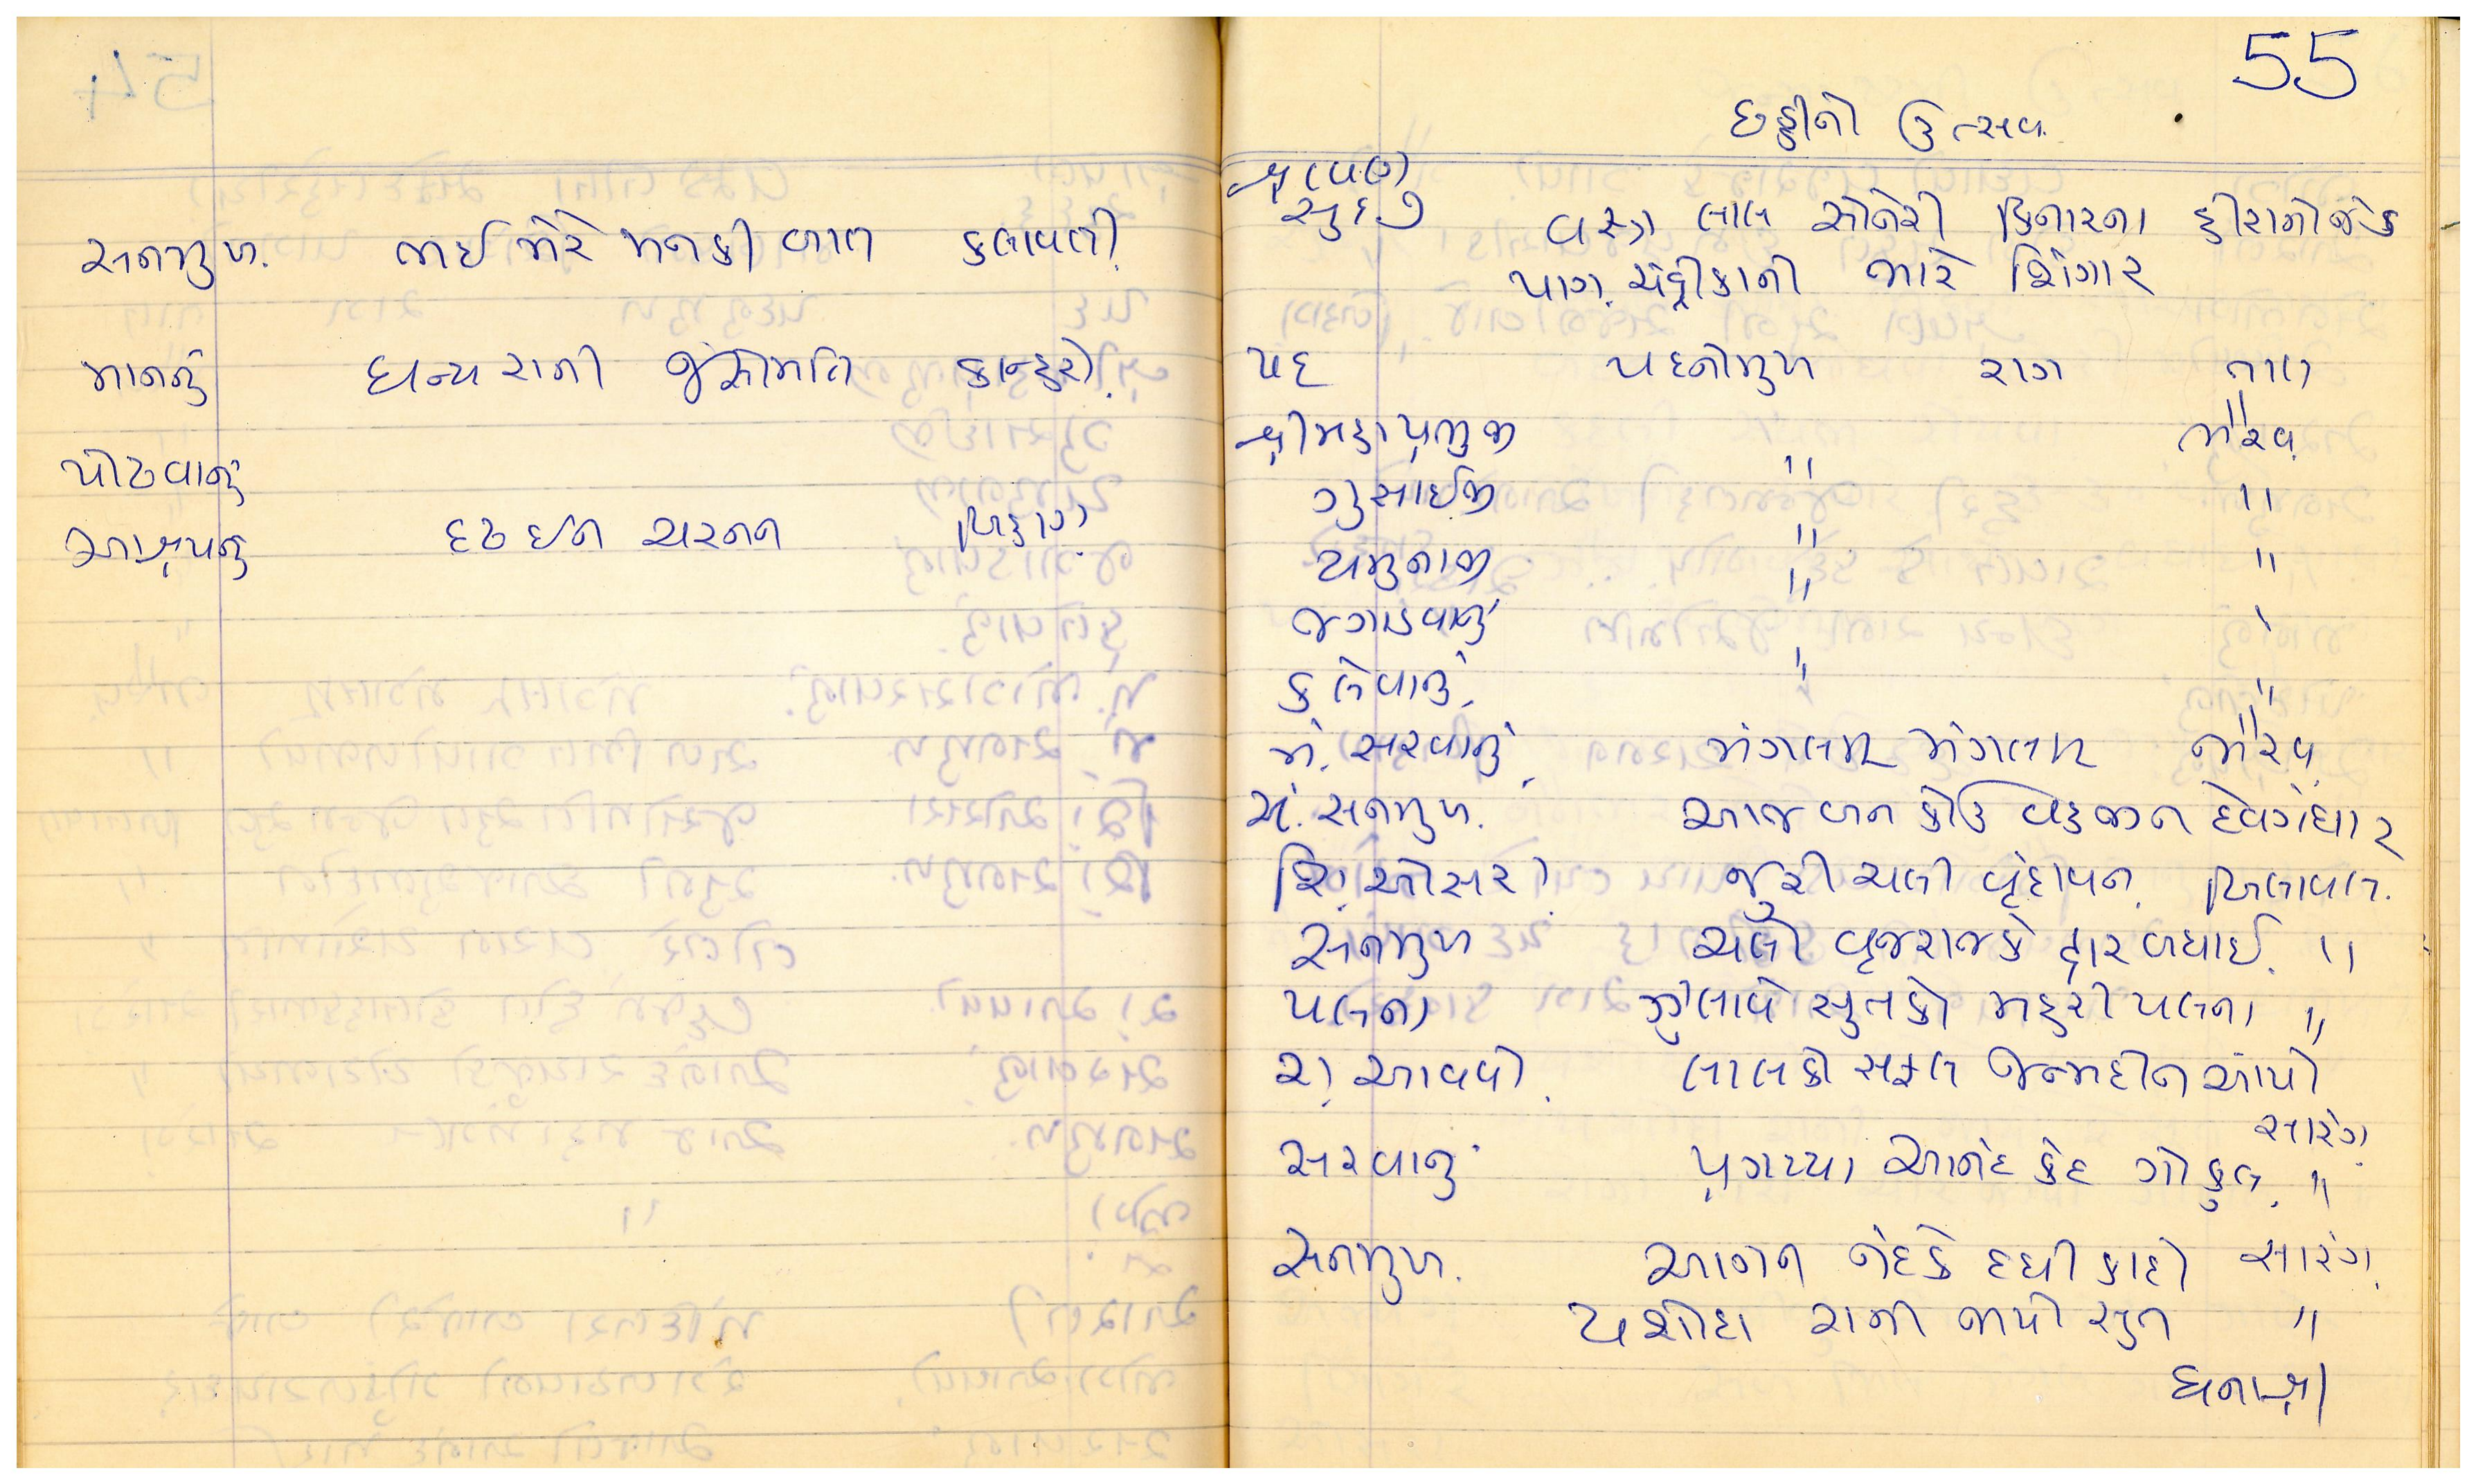 સનમુખ. ભઈ મેરે મનકી બાત કલાવતી.
માનનું ધન્ય રાની જસોમતિ કાન્હરો.
પોઢવાનું
આશ્રયનું દૃઢ ઈન ચરનન બિહાગ.
55
છઠ્ઠીનો ઉત્સવ.
શ્રાવણ
સુદ ૭
વસ્ત્ર લાલ સોનેરી કિનારના હીરામોજેક
પાગ. ચંદ્રીકાની ભારે શિંગાર
પદ પદનીમુખ રાગ તાલ
શ્રીમહાપ્રભુજી " ભૈરવ.
ગુસાઈજી " "
યમુનાજી " "
જગાડવાનું " "
કલેવાનું. " "
મં. સરવાનું. મંગલમ મંગલમ ભૈરવ.
મં. સનમુખ. આજ બન કોઉ વહજીન દેવગંધાર
શિં. ઓસરા. જુરી ચલી વૃંદાવન. બિલાવલ.
સનમુખ ચલો વૃજરાજકે દ્વાર બધાઈ. "
પલના ઝુલાવે સુતકો મહરી પલના "
રા. આવવો. લાલકો સફલ જન્મદીન આયો
સારંગ.
સરવાનું પ્રગટ્યા આનંદ કંદ ગોકુલ. "
સનમુખ. આંગન નંદકે દધી કાદો સારંગ.
યશોદા રાની જાયો સુત "
ધનાશ્રી